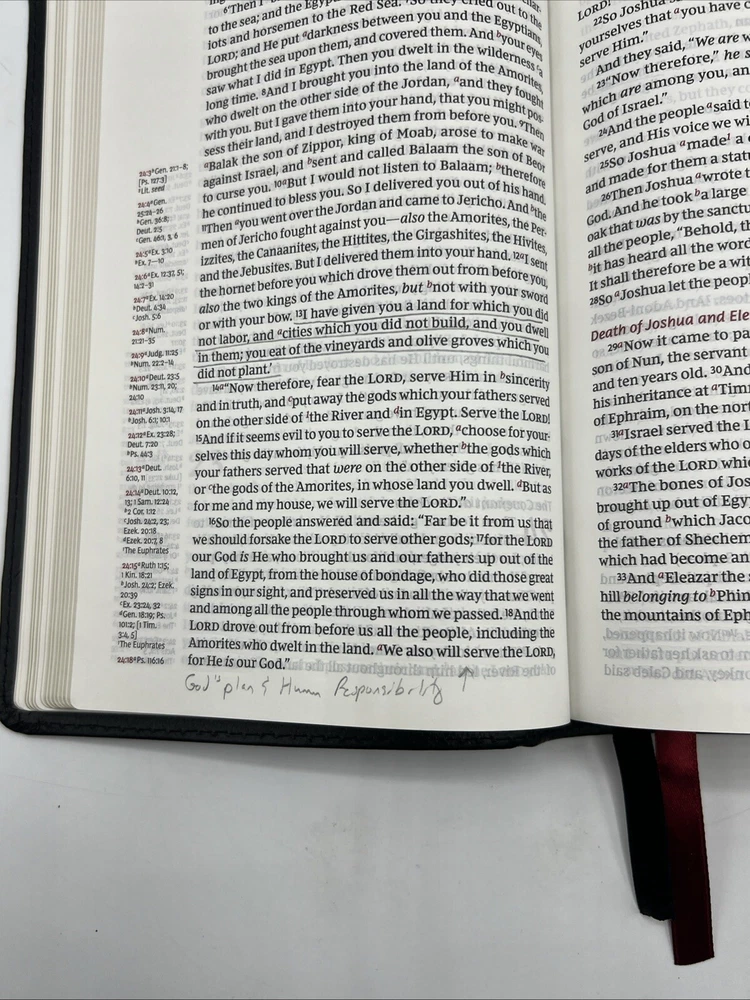 24:3 ᵃGen. 21:1–8;
[Ps. 127:3]
¹Lit. seed
24:4 ᵃGen.
25:24–26
ᵇGen. 36:8;
Deut. 2:5
ᶜGen. 46:1, 3, 6
24:5 ᵃEx. 3:10
ᵇEx. 7–10
24:6 ᵃEx. 12:37, 51;
14:2–31
24:7 ᵃEx. 14:20
ᵇDeut. 4:34
ᶜJosh. 5:6
24:8 ᵃNum.
21:21–35
24:9 ᵃJudg. 11:25
ᵇNum. 22:2–14
24:10 ᵃDeut. 23:5
ᵇNum. 23:11, 20;
24:10
24:11 ᵃJosh. 3:14, 17
ᵇJosh. 6:1; 10:1
24:12 ᵃEx. 23:28;
Deut. 7:20
ᵇPs. 44:3
24:13 ᵃDeut.
6:10, 11
24:14 ᵃDeut. 10:12,
13; 1 Sam. 12:24
ᵇ2 Cor. 1:12
ᶜJosh. 24:2, 23;
Ezek. 20:18
ᵈEzek. 20:7, 8
¹The Euphrates
24:15 ᵃRuth 1:15;
1 Kin. 18:21
ᵇJosh. 24:2; Ezek.
20:39
ᶜEx. 23:24, 32
ᵈGen. 18:19; Ps.
101:2; [1 Tim.
3:4, 5]
¹The Euphrates
24:18 ᵃPs. 116:16
⁶"Then I
to the sea; and the Egyp
iots and horsemen to the Red Sea. ⁷So they cried out to the
LORD; and He put ᵃdarkness between you and the Egyptians,
brought the sea upon them, and covered them. And ᵇyour eyes
saw what I did in Egypt. Then you dwelt in the wilderness ᶜa
long time. ⁸And I brought you into the land of the Amorites,
who dwelt on the other side of the Jordan, ᵃand they fought
with you. But I gave them into your hand, that you might pos-
sess their land, and I destroyed them from before you. ⁹Then
ᵃBalak the son of Zippor, king of Moab, arose to make war
against Israel, and ᵇsent and called Balaam the son of Beor
to curse you. ¹⁰ᵃBut I would not listen to Balaam; ᵇtherefore
he continued to bless you. So I delivered you out of his hand.
¹¹Then ᵃyou went over the Jordan and came to Jericho. And ᵇthe
men of Jericho fought against you—also the Amorites, the Per-
izzites, the Canaanites, the Hittites, the Girgashites, the Hivites,
and the Jebusites. But I delivered them into your hand. ¹²ᵃI sent
the hornet before you which drove them out from before you,
also the two kings of the Amorites, but ᵇnot with your sword
or with your bow. ¹³I have given you a land for which you did
not labor, and ᵃcities which you did not build, and you dwell
in them; you eat of the vineyards and olive groves which you
did not plant.'
¹⁴ᵃ"Now therefore, fear the LORD, serve Him in ᵇsincerity
and in truth, and ᶜput away the gods which your fathers served
on the other side of ¹the River and ᵈin Egypt. Serve the LORD!
¹⁵And if it seems evil to you to serve the LORD, ᵃchoose for your-
selves this day whom you will serve, whether ᵇthe gods which
your fathers served that were on the other side of ¹the River,
or ᶜthe gods of the Amorites, in whose land you dwell. ᵈBut as
for me and my house, we will serve the LORD."
¹⁶So the people answered and said: "Far be it from us that
we should forsake the LORD to serve other gods; ¹⁷for the LORD
our God is He who brought us and our fathers up out of the
land of Egypt, from the house of bondage, who did those great
signs in our sight, and preserved us in all the way that we went
and among all the people through whom we passed. ¹⁸And the
LORD drove out from before us all the people, including the
Amorites who dwelt in the land. ᵃWe also will serve the LORD,
for He is our God."
God's plan & Human Responsibility ↑
LORD!
²²So Joshua s
yourselves that ᵃyou have c
serve Him."
And they said, "We are w
²³"Now therefore," he s
which are among you, an
God of Israel."
²⁴And the people ᵃsaid to
serve, and His voice we wi
²⁵So Joshua ᵃmade¹ a c
and made for them a statu
²⁶Then Joshua ᵃwrote t
God. And he took ᵇa large
oak that was by the sanctu
all the people, "Behold, th
ᵇit has heard all the word
It shall therefore be a wit
²⁸So ᵃJoshua let the peopl
Death of Joshua and Ele
²⁹ᵃNow it came to pa
son of Nun, the servant
and ten years old. ³⁰And
his inheritance at ᵃTim
of Ephraim, on the nort
³¹ᵃIsrael served the L
days of the elders who o
works of the LORD whic
³²ᵃThe bones of Jos
brought up out of Egy
of ground ᵇwhich Jaco
the father of Shechem
which had become an
³³And ᵃEleazar the s
hill belonging to ᵇPhin
the mountains of Eph